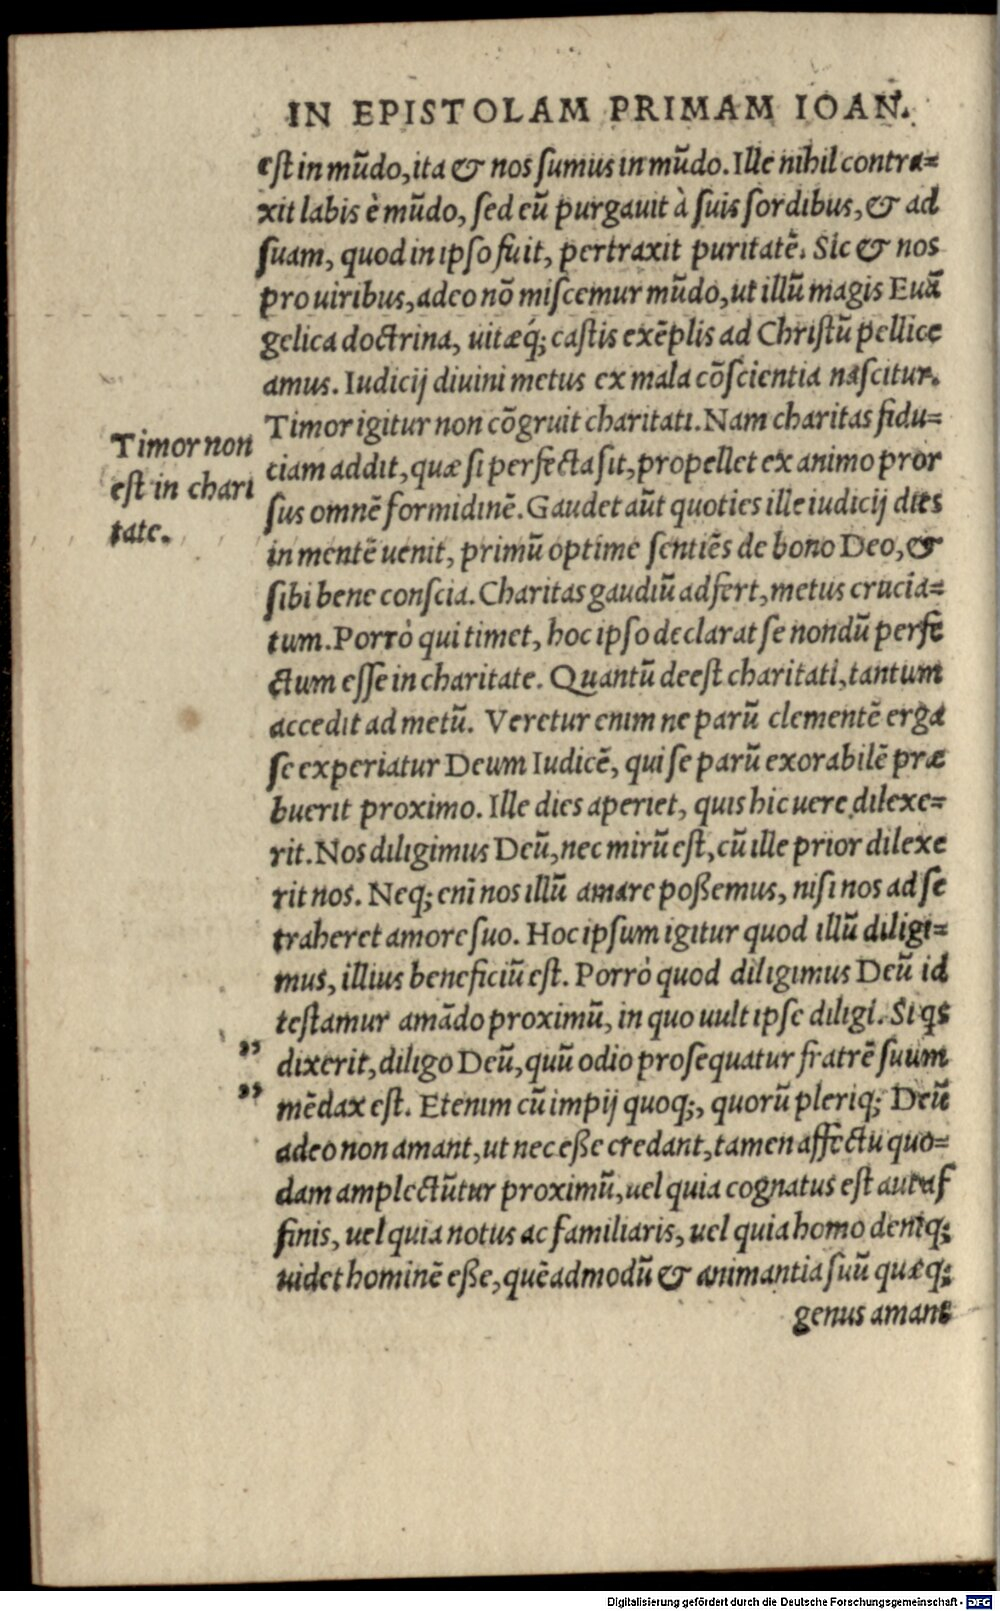 IN EPISTOLAM PRIMAM IOAN.
est in mũdo, ita & nos sumus in mũdo. Ille nihil contra=
xit labis è mũdo, sed eũ purgauit à suis sordibus, & ad
suam, quod in ipso fuit, pertraxit puritatẽ. Sic & nos
pro uiribus, adeo nõ miscemur mũdo, ut illũ magis Euã
gelica doctrina, uitæq́; castis exẽplis ad Christũ pellice
amus. Iudicij diuini metus ex mala cõscientia nascitur.
Timor igitur non cõgruit charitati. Nam charitas fidu=
ciam addit, quæ si perfecta sit, propellet ex animo pror
sus omnẽ formidinẽ. Gaudet aũt quoties ille iudicij dies
in mentẽ uenit, primũ optime sentiẽs de bono Deo, &
sibi bene conscia. Charitas gaudiũ adfert, metus crucia=
tum. Porrò qui timet, hoc ipso declarat se nondũ perfe
ctum esse in charitate. Quantũ deest charitati, tantum
accedit ad metũ. Veretur enim ne parũ clementẽ erga
se experiatur Deum Iudicẽ, qui se parũ exorabilẽ præ
buerit proximo. Ille dies aperiet, quis hic uere dilexe=
rit. Nos diligimus Deũ, nec mirũ est, cũ ille prior dilexe
rit nos. Neq; enĩ nos illũ amare poßemus, nisi nos ad se
traheret amore suo. Hoc ipsum igitur quod illũ diligi=
mus, illius beneficiũ est. Porrò quod diligimus Deũ id
testamur amãdo proximũ, in quo uult ipse diligi. Si qs
dixerit, diligo Deũ, quũ odio prosequatur fratrẽ suum
mẽdax est. Etenim cũ impij quoq;, quorũ pleriq; Deũ
adeo non amant, ut nec eße credant, tamen affectu quo=
dam amplectũtur proximũ, uel quia cognatus est aut af
finis, uel quia notus ac familiaris, uel quia homo deniq;
uidet hominẽ eße, quẽadmodũ & animantia suũ quæq;
genus amant
Timor non
est in chari
tate.
”
”
Digitalisierung gefördert durch die Deutsche Forschungsgemeinschaft - DFG